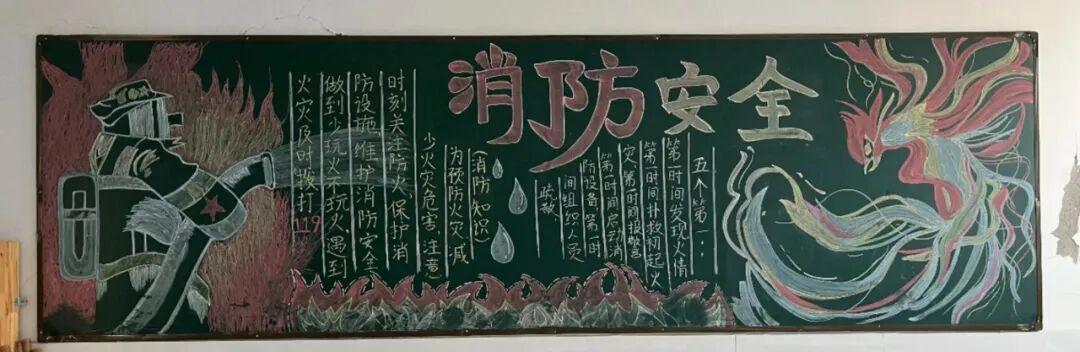 消防安全
五个第一：
第一时间发现火情
第一时间扑救初起火
灾、第一时间报警
第一时间启动消
防设备、第一时
间组织人员
疏散
(消防知识)
为预防火灾、减
少火灾危害、注意
时刻关注防火、保护消
防设施、维护消防安全
做到少玩火不玩火遇到
火灾及时拨打119